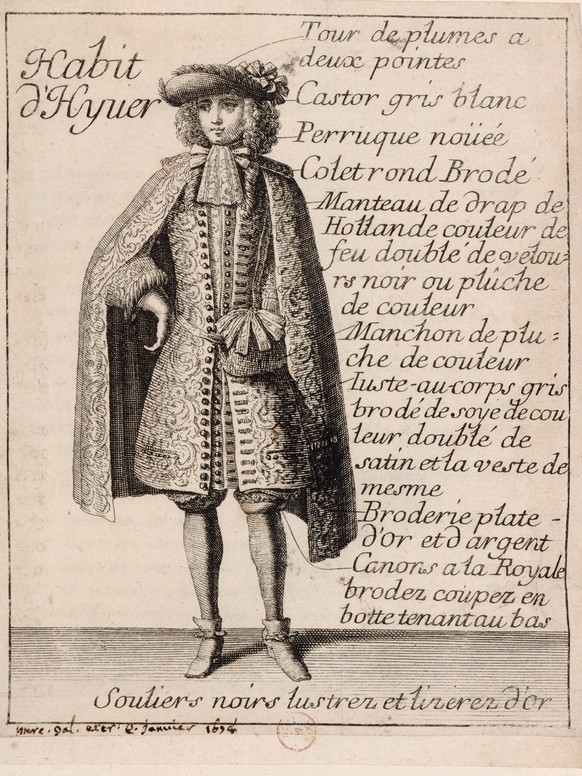 Habit
d'Hyuer
Tour de plumes a
deux pointes
Castor gris blanc
Perruque noüée
Colet rond Brodé
Manteau de drap de
Hollande couleur de
feu doublé de velou-
rs noir ou plûche
de couleur
Manchon de plu=
che de couleur
Iuste-au-corps gris
brodé de soye de cou
leur doublé de
satin et la veste de
mesme
Broderie plate-
d'or et d'argent
Canons a la Royale
brodez coupez en
botte tenant au bas
Souliers noirs lustrez et lizerez d'or
janvier